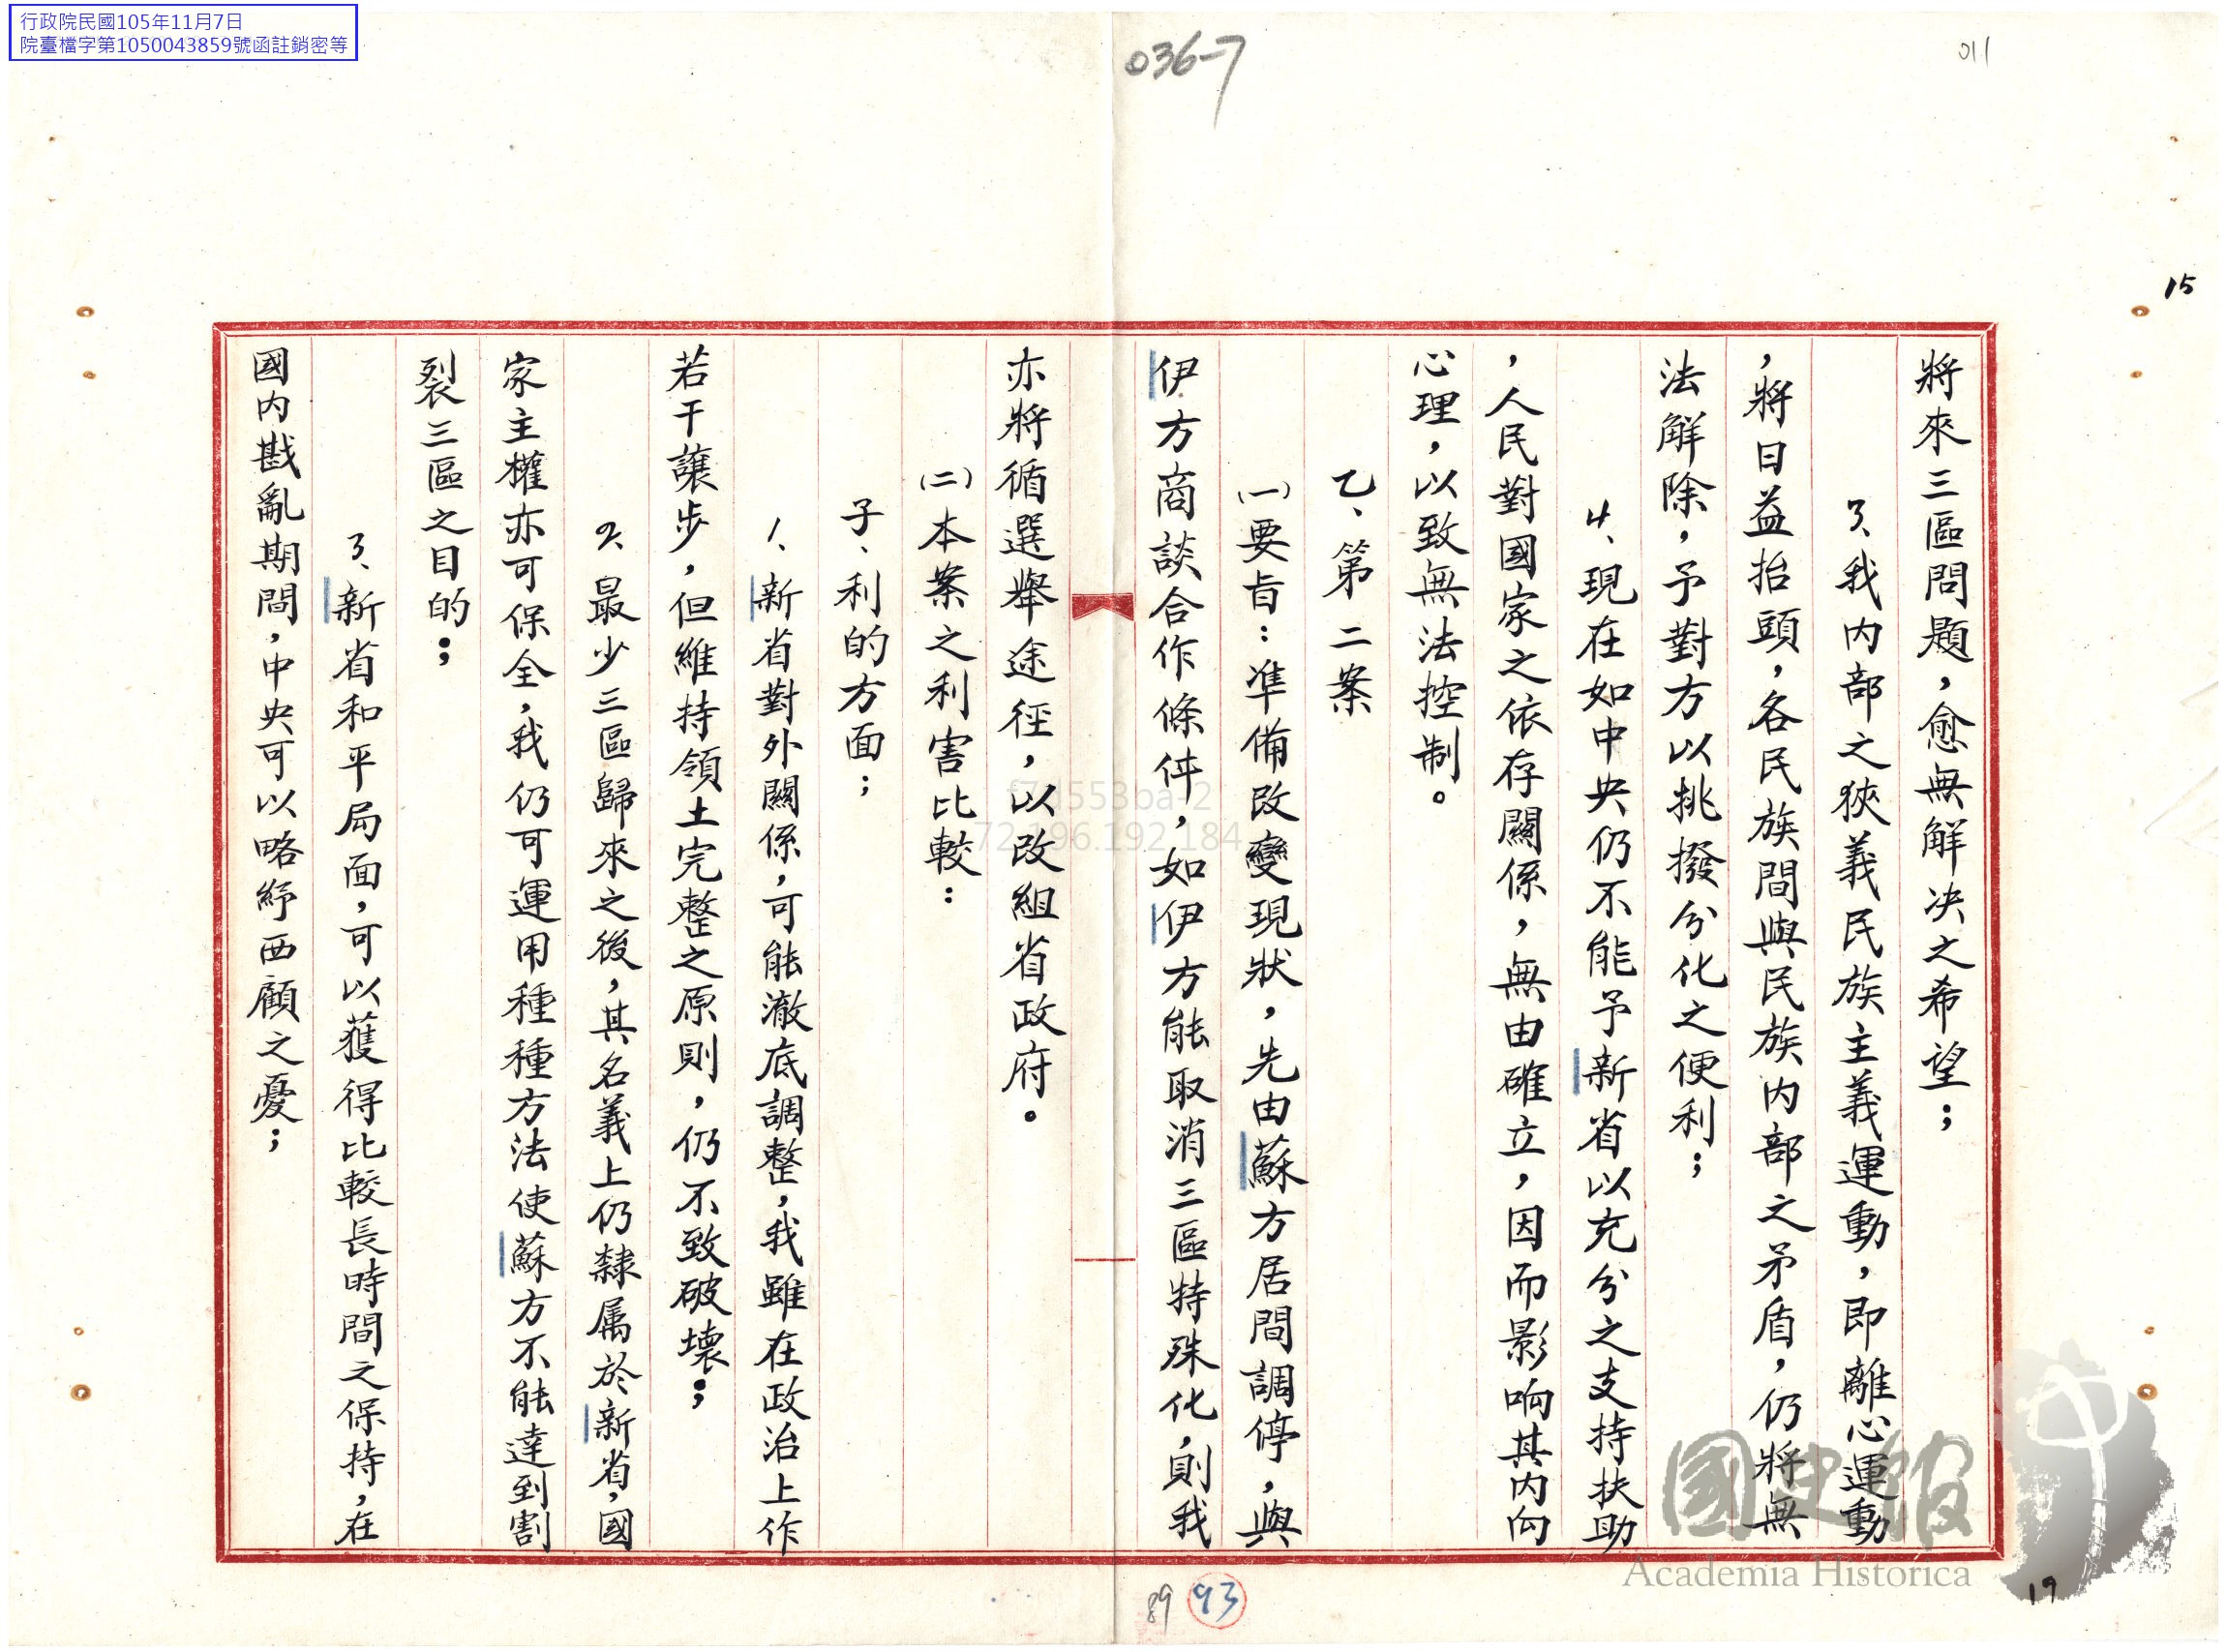 行政院民國105年11月7日
院臺檔字第1050043859號函註銷密等
036-7
011
15
將來三區問題，愈無解決之希望；
3、我內部之狹義民族主義運動，即離心運動
，將日益抬頭，各民族間與民族內部之矛盾，仍將無
法解除，予對方以挑撥分化之便利；
4、現在如中央仍不能予新省以充分之支持扶助
，人民對國家之依存關係，無由確立，因而影响其內向
心理，以致無法控制。
乙、第二案
(一)要旨：準備改變現狀，先由蘇方居間調停，與
伊方商談合作條件，如伊方能取消三區特殊化，則我
亦將循選舉途徑，以改組省政府。
(二)本案之利害比較：
子、利的方面；
1、新省對外關係，可能澈底調整，我雖在政治上作
若干讓步，但維持領土完整之原則，仍不致破壞；
2、最少三區歸來之後，其名義上仍隸属於新省，國
家主權亦可保全，我仍可運用種種方法使蘇方不能達到割
裂三區之目的；
3、新省和平局面，可以獲得比較長時間之保持，在
國內戡亂期間，中央可以略紓西顧之憂；
f7d553ba-2
72.196.192.184
國史館
Academia Historica
89
93
19